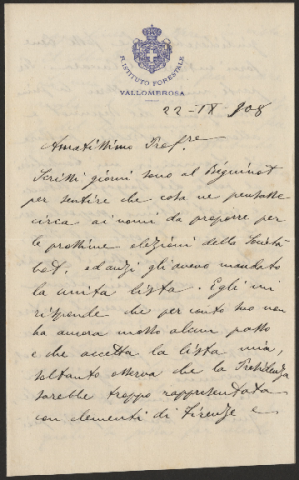 R. ISTITUTO FORESTALE
VALLOMBROSA
22-IX 908
Amatissimo Prof.re
Scrissi giorni sono al Béguinot
per sentire che cosa ne pensasse
circa ai nomi da proporre per
le prossime elezioni della Società
bot. ed anzi gli avevo mandato
la unita lista. Egli mi
risponde che per conto suo non
ha ancora mosso alcun passo
e che accetta la lista mia,
soltanto osserva che la Presidenza
sarebbe troppo rappresentata
con elementi di Firenze e